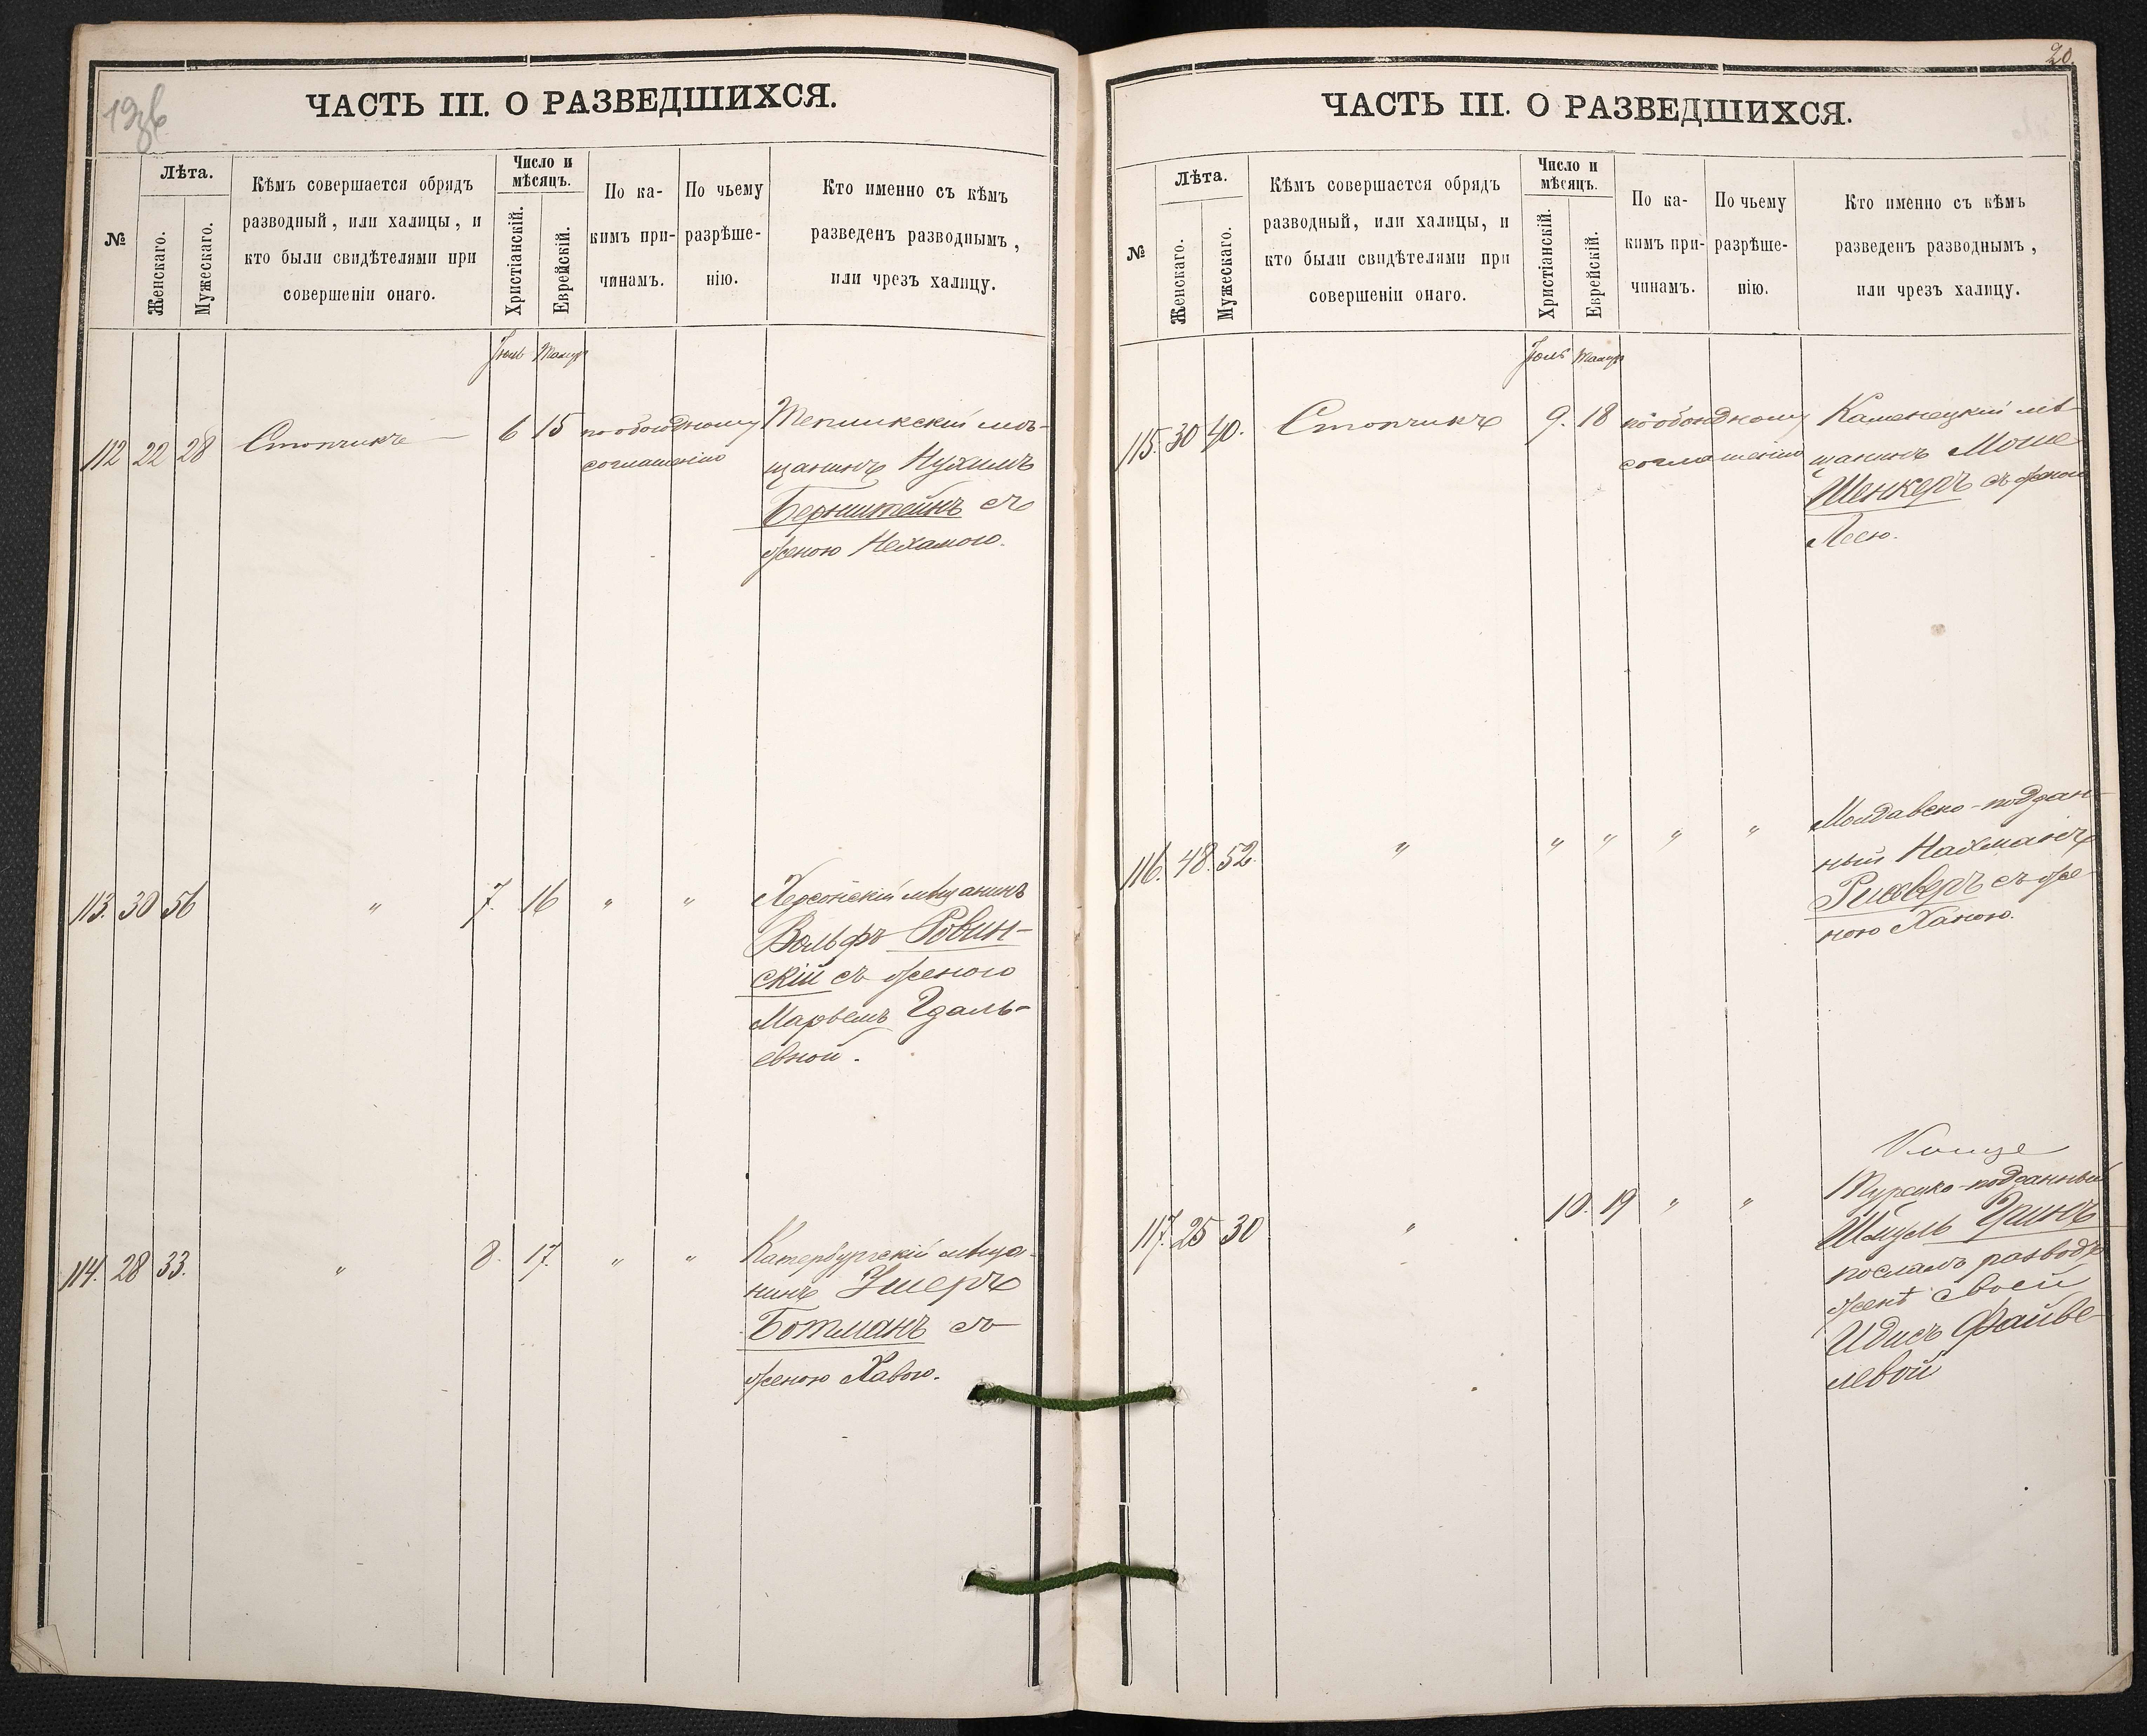 19об
ЧАСТЬ III. О РАЗВЕДШИХСЯ.
№
Лѣта.
Женскаго.
Мужескаго.
Кѣмъ совершается обрядъ
разводный, или халицы, и
кто были свидѣтелями при
совершеніи онаго.
Число и
мѣсяцъ.
Христіанскій.
Еврейскій.
По ка-
кимъ при-
чинамъ.
По чьему
разрѣше-
нію.
Кто именно съ кѣмъ
разведенъ разводнымъ,
или чрезъ халицу.
Іюль Тамуз
112 22 28 Столчикъ 6 15 по обоюдному
соглашенію
Тепликскій мѣ-
щанинъ Нухимъ
Бернштейнъ съ
женою Нехамою.
113. 30 56 " 7. 16 " "
Херсонскій мѣщанинъ
Вольфъ Ровин-
скій съ женою
Марьемъ Гдаль-
евной.
114. 28 33. " 8. 17. " "
Катербургскій мѣща-
нинъ Ушеръ
Ботманъ съ
женою Хавою.
20.
ЧАСТЬ III. О РАЗВЕДШИХСЯ.
№
Лѣта.
Женскаго.
Мужескаго.
Кѣмъ совершается обрядъ
разводный, или халицы, и
кто были свидѣтелями при
совершеніи онаго.
Число и
мѣсяцъ.
Христіанскій.
Еврейскій.
По ка-
кимъ при-
чинамъ.
По чьему
разрѣше-
нію.
Кто именно съ кѣмъ
разведенъ разводнымъ,
или чрезъ халицу.
Іюль Тамуз
115. 30 40. Столчикъ 9. 18 по обоюдному
соглашенію
Каменецкій мѣ-
щанинъ Моше
Шенкеръ съ женою
Лею.
116. 48. 52. " " " " "
Молдавско-поддан-
ный Нахманъ
съ же-
ною Ханою.
117. 25 30 " 10. 19 " "
Турецко-подданный
Шмуль Гринъ
послалъ разводъ
женѣ своей
Идисъ Файве-
левой